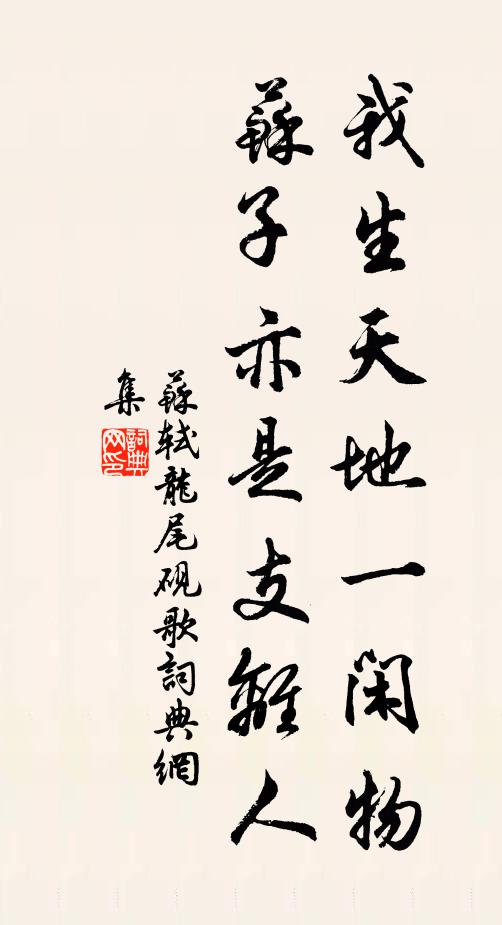 我生天地一閑物
蘇子亦是支離人
蘇軾龍尾硯歌詞典網
集
詞典
网印